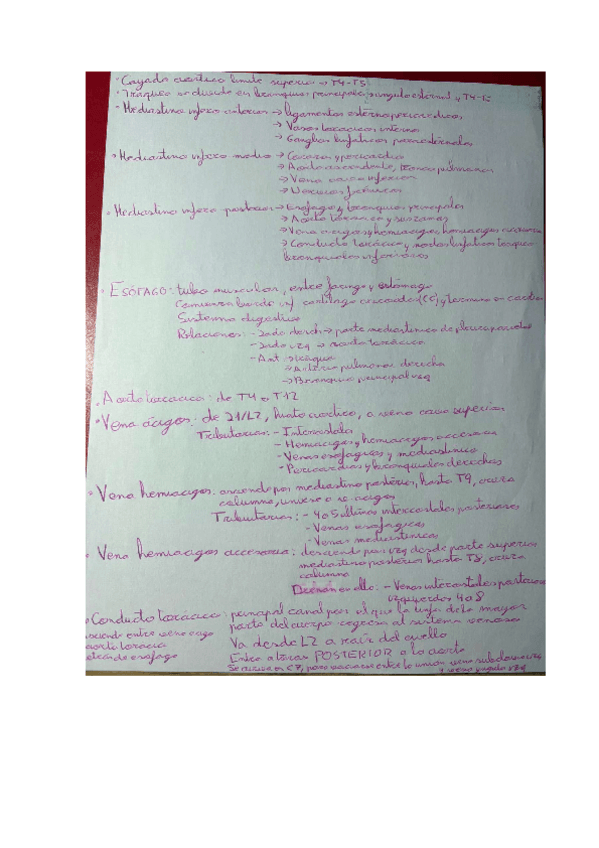 · Cayado aórtico limite superior → T4-T5
· Traquea se divide en bronquios principales, angulo esternal y T4-T5
· Mediastino infero anterior → ligamentos esternopericardicos
→ Vasos toracicos internos
→ Ganglios linfaticos paraesternales
· Mediastino infero medio → Corazon y pericardio
→ Aorta ascendente, tronco pulmonar
→ Vena cava inferior
→ Nervios frenicos
· Mediastino infero posterior → Esofago y bronquios principales
→ Aorta toracica y sus ramas
→ Vena acigos y hemiacigos, hemiacigos accesoria
→ Conducto torácico y nodos linfaticos traqueo
bronquiales inferiores
· ESÓFAGO: tubo muscular, entre faringe y estómago
Comienza borde inf cartilago cricoides (C6) y termina en cardias
Sistema digestivo
Relaciones: - Lado derch → parte mediastinica de pleura parietal
- Lado izq → aorta torácica
- Ant → traquea
→ Arteria pulmonar derecha
→ Bronquio principal izq
· Aorta toracica: de T4 a T12
· Vena ácigos: de L1/L2, hiato aórtico, a vena cava superior
Tributarias: - Intercostales
- Hemiacigos y hemiacigos accesoria
- Venas esofagicas y mediastinicas
- Pericardicas y bronquiales derechas
· Vena hemiacigos: asciende por mediastino posterior, hasta T9, cruza
columna, unirse a v. acigos
Tributarias: - 4 o 5 ultimas intercostales posteriores
- Venas esofagicas
- Venas mediastinicas
· Vena hemiacigos accesoria: desciende por izq desde parte superior
mediastino posterior hasta T8, cruza
columna
Drenan en ella: - Venas intercostales posteriores
izquierdas 4 a 8
· Conducto torácico: principal canal por el que la linfa de la mayor
parte del cuerpo regresa al sistema venoso
asciende entre vena acigos
aorta toracica
detrás de esofago
Va desde L2 a raíz del cuello
Entra a torax POSTERIOR a la aorta